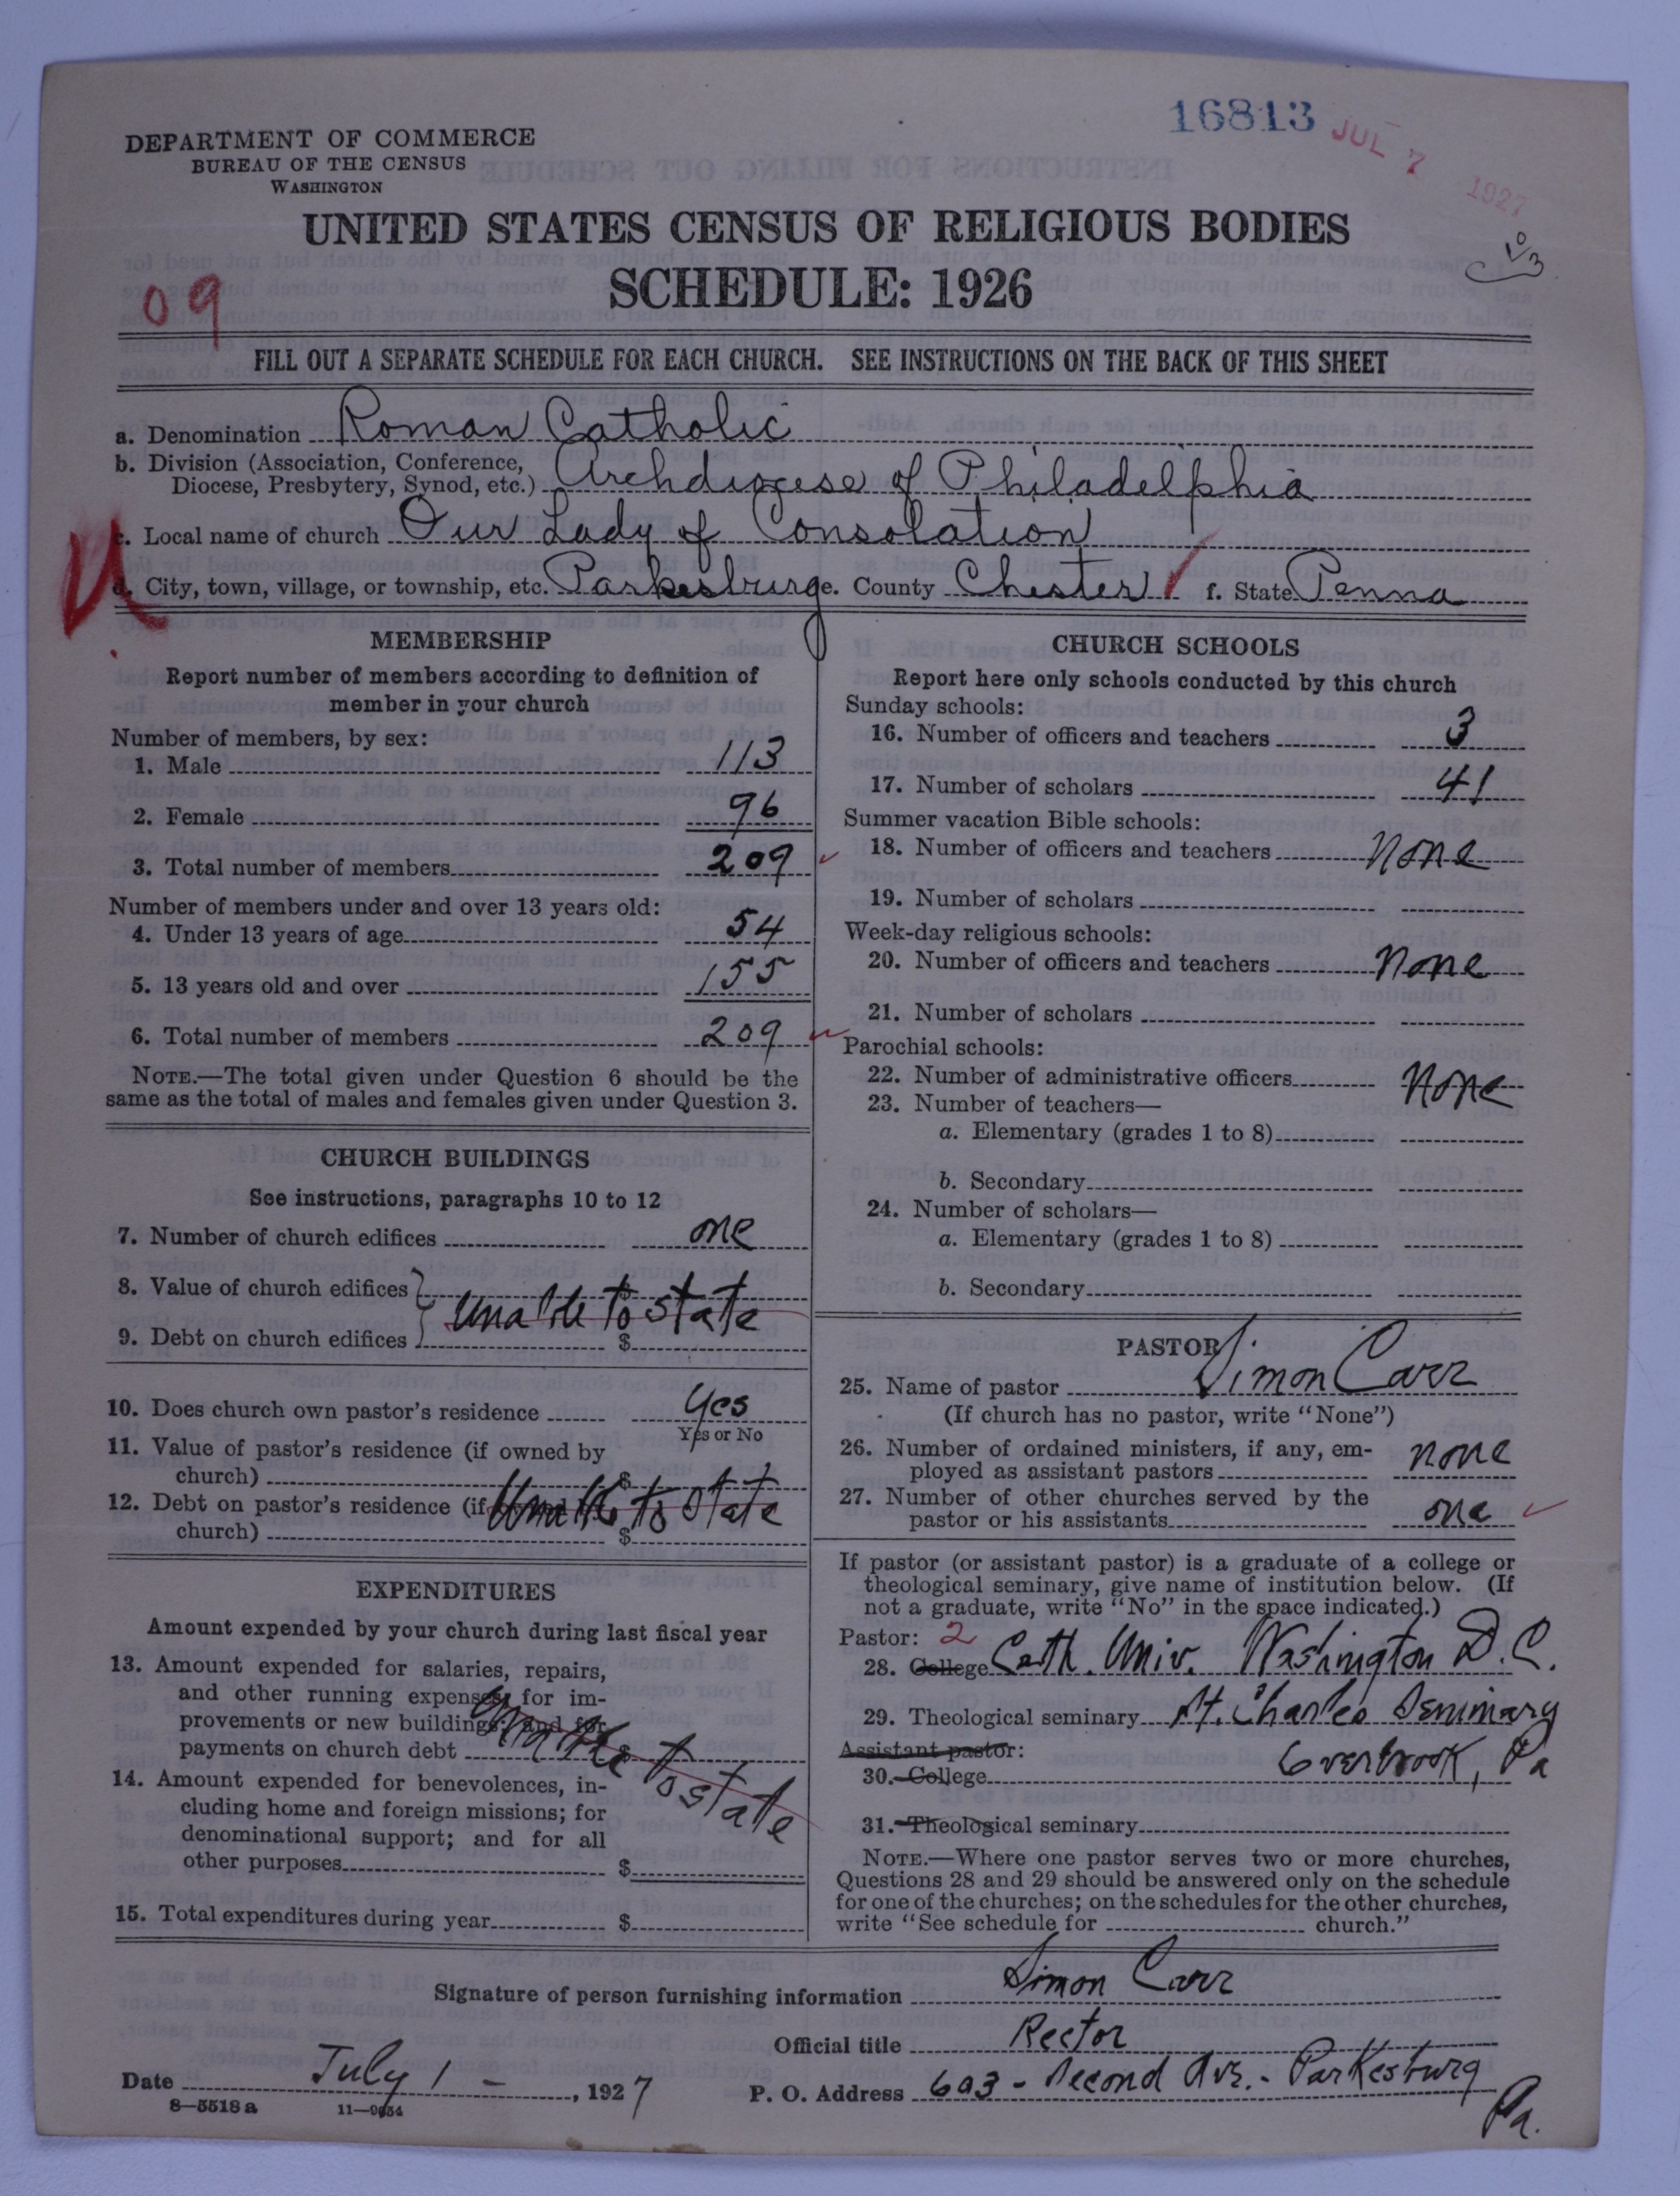 16813
JUL 7 1927
DEPARTMENT OF COMMERCE
BUREAU OF THE CENSUS
WASHINGTON
UNITED STATES CENSUS OF RELIGIOUS BODIES
SCHEDULE: 1926
09
FILL OUT A SEPARATE SCHEDULE FOR EACH CHURCH. SEE INSTRUCTIONS ON THE BACK OF THIS SHEET
a. Denomination Roman Catholic
b. Division (Association, Conference, Diocese, Presbytery, Synod, etc.) Archdiocese of Philadelphia
c. Local name of church Our Lady of Consolation
d. City, town, village, or township, etc. Parkesburg e. County Chester f. State Penna
MEMBERSHIP
Report number of members according to definition of
member in your church
Number of members, by sex:
1. Male 113
2. Female 96
3. Total number of members 209
Number of members under and over 13 years old:
4. Under 13 years of age 54
5. 13 years old and over 155
6. Total number of members 209
NOTE.—The total given under Question 6 should be the
same as the total of males and females given under Question 3.
CHURCH BUILDINGS
See instructions, paragraphs 10 to 12
7. Number of church edifices one
8. Value of church edifices
Unable to state
9. Debt on church edifices $
10. Does church own pastor's residence Yes
Yes or No
11. Value of pastor's residence (if owned by
church) $
12. Debt on pastor's residence (if Unable to state
church) $
EXPENDITURES
Amount expended by your church during last fiscal year
13. Amount expended for salaries, repairs,
and other running expenses; for im-
provements or new buildings; and for
payments on church debt $ Unable to state
14. Amount expended for benevolences, in-
cluding home and foreign missions; for
denominational support; and for all
other purposes $
15. Total expenditures during year $
CHURCH SCHOOLS
Report here only schools conducted by this church
Sunday schools:
16. Number of officers and teachers 3
17. Number of scholars 41
Summer vacation Bible schools:
18. Number of officers and teachers None
19. Number of scholars
Week-day religious schools:
20. Number of officers and teachers None
21. Number of scholars
Parochial schools:
22. Number of administrative officers None
23. Number of teachers—
a. Elementary (grades 1 to 8)
b. Secondary
24. Number of scholars—
a. Elementary (grades 1 to 8)
b. Secondary
PASTOR
25. Name of pastor Simon Carr
(If church has no pastor, write "None")
26. Number of ordained ministers, if any, em-
ployed as assistant pastors none
27. Number of other churches served by the
pastor or his assistants one
If pastor (or assistant pastor) is a graduate of a college or
theological seminary, give name of institution below. (If
not a graduate, write "No" in the space indicated.)
Pastor: 2
28. College Cath. Univ. Washington D.C.
29. Theological seminary St. Charles Seminary
Assistant pastor: Overbrook, Pa
30. College
31. Theological seminary
NOTE.—Where one pastor serves two or more churches,
Questions 28 and 29 should be answered only on the schedule
for one of the churches; on the schedules for the other churches,
write "See schedule for church."
Signature of person furnishing information Simon Carr
Official title Rector
Date July 1 - , 1927 P. O. Address 603 - Second Ave. - Parkesburg
Pa.
8—5518a 11—9654